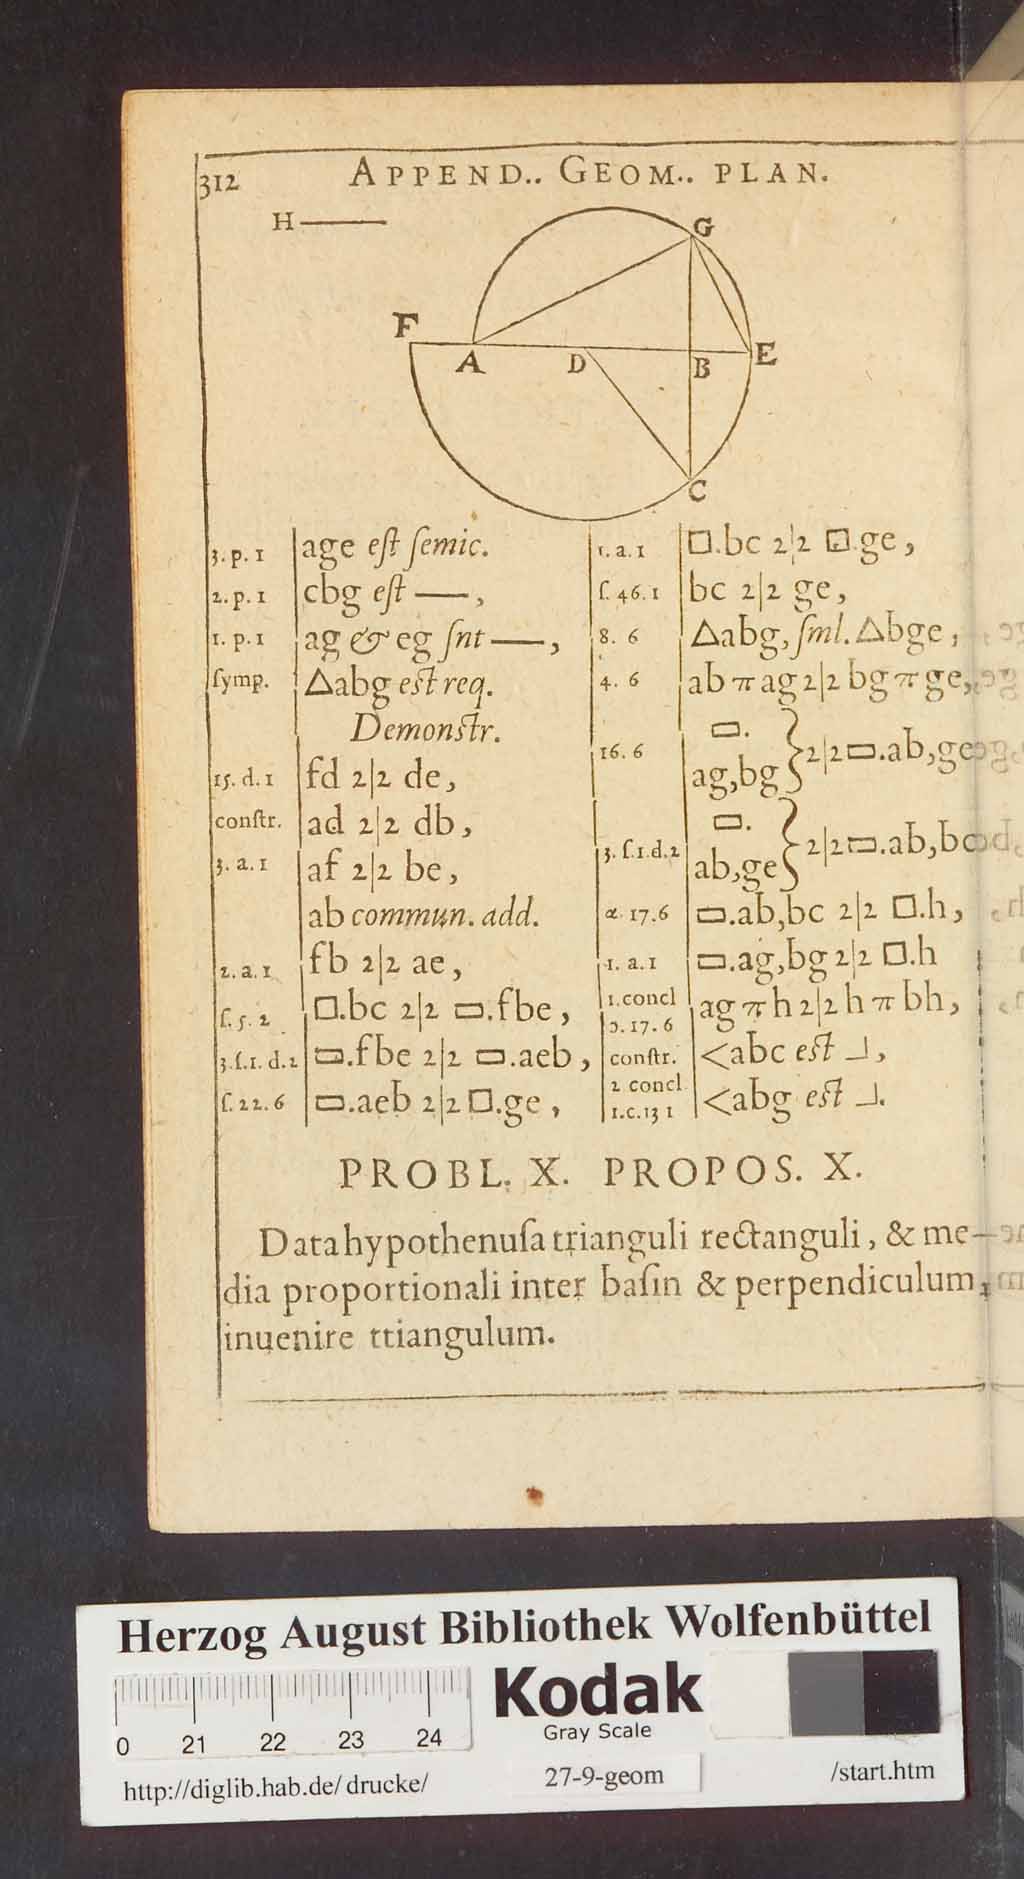 312 APPEND.. GEOM.. PLAN.
H
G
F
A D B E
C
3. p. 1 age eſt ſemic.
2. p. 1 cbg eſt —,
1. p. 1 ag & eg ſnt —,
ſymp. △abg eſt req.
Demonſtr.
15. d. 1 fd 2|2 de,
conſtr. ad 2|2 db,
3. a. 1 af 2|2 be,
ab commun. add.
2. a. 1 fb 2|2 ae,
ſ. 5. 2 □.bc 2|2 ▭.fbe,
3.ſ.1. d.2 ▭.fbe 2|2 ▭.aeb,
ſ. 22. 6 ▭.aeb 2|2 □.ge,
1. a. 1 □.bc 2|2 □.ge,
ſ. 46. 1 bc 2|2 ge,
8. 6 △abg, ſml. △bge,
4. 6 ab π ag 2|2 bg π ge,
16. 6 ▭. ag,bg } 2|2 ▭.ab,ge
3. ſ.1.d.2 ▭. ab,ge } 2|2 ▭.ab,bc
α. 17.6 ▭.ab,bc 2|2 □.h,
1. a. 1 ▭.ag,bg 2|2 □.h
1.concl
17. 6 ag π h 2|2 h π bh,
conſtr. <abc eſt ⅃,
2 concl
1.c.13 1 <abg eſt ⅃.
PROBL. X. PROPOS. X.
Data hypothenuſa trianguli rectanguli, & me-
dia proportionali inter baſin & perpendiculum,
inuenire ttiangulum.
Herzog August Bibliothek Wolfenbüttel
Kodak
Gray Scale
0 21 22 23 24
http://diglib.hab.de/drucke/ 27-9-geom /start.htm